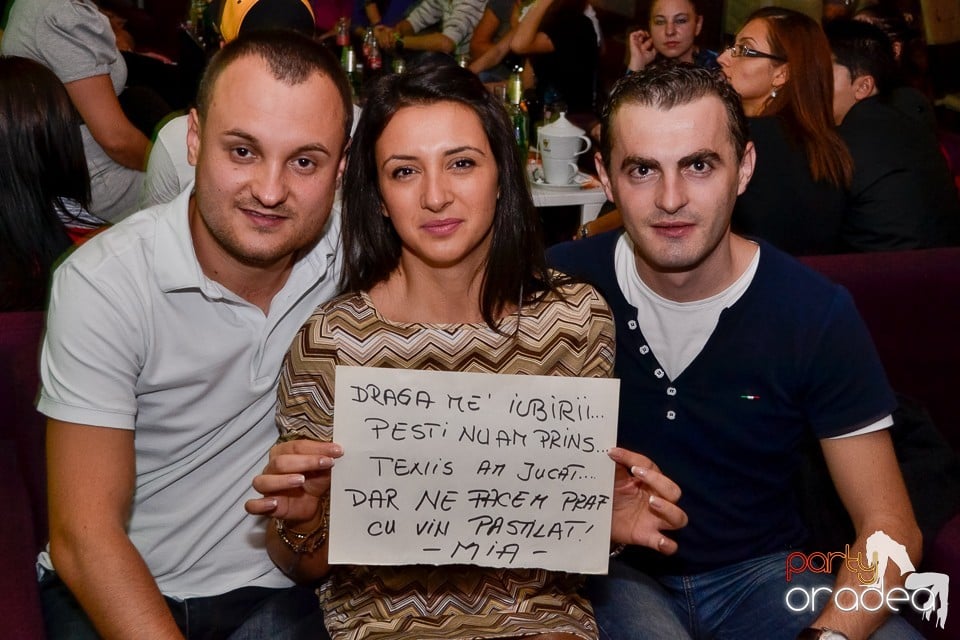 DRAGA ME' IUBIRII...
PESTI NU AM PRINS...
TEXIIS AM JUCAT....
DAR NE FACEM PRAF
CU VIN PASTILAT!
- MIA -
party
oradea